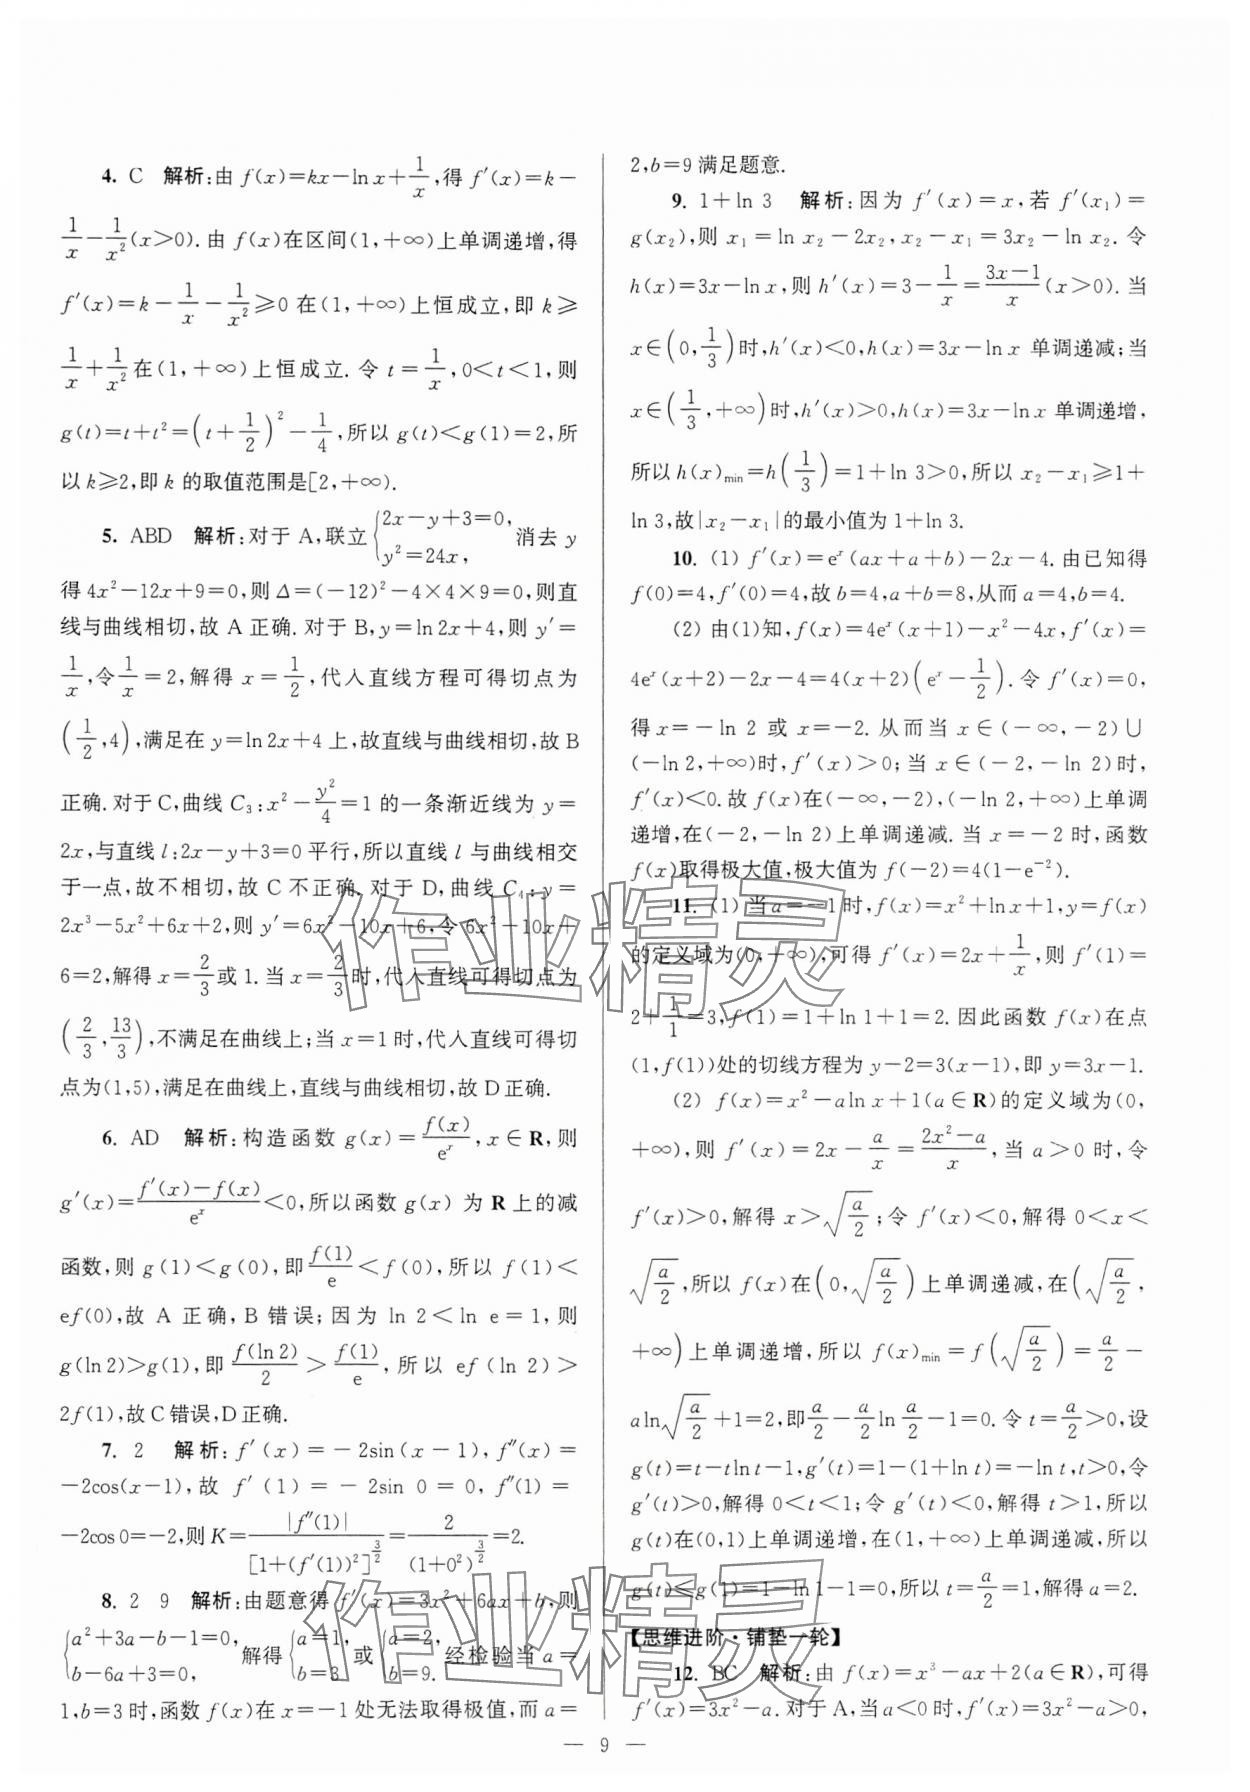 4. C 解析:由 f(x)=kx-ln x+1/x,得 f′(x)=k-
1/x-1/x²(x>0). 由 f(x)在区间(1,+∞)上单调递增,得
f′(x)=k-1/x-1/x²≥0 在(1,+∞)上恒成立,即 k≥
1/x+1/x²在(1,+∞)上恒成立. 令 t=1/x,0<t<1,则
g(t)=t+t²=(t+1/2)²-1/4,所以 g(t)<g(1)=2,所
以 k≥2,即 k 的取值范围是[2,+∞).
5. ABD 解析:对于 A,联立{2x-y+3=0, y²=24x, 消去 y
得 4x²-12x+9=0,则 Δ=(-12)²-4×4×9=0,则直
线与曲线相切,故 A 正确. 对于 B,y=ln 2x+4,则 y′=
1/x,令1/x=2,解得 x=1/2,代入直线方程可得切点为
(1/2,4),满足在 y=ln 2x+4 上,故直线与曲线相切,故 B
正确. 对于 C,曲线 C₃:x²-y²/4=1 的一条渐近线为 y=
2x,与直线 l:2x-y+3=0 平行,所以直线 l 与曲线相交
于一点,故不相切,故 C 不正确. 对于 D,曲线 C₄:y=
2x³-5x²+6x+2,则 y′=6x²-10x+6,令 6x²-10x+
6=2,解得 x=2/3或 1. 当 x=2/3时,代入直线可得切点为
(2/3,13/3),不满足在曲线上;当 x=1 时,代入直线可得切
点为(1,5),满足在曲线上,直线与曲线相切,故 D 正确.
6. AD 解析:构造函数 g(x)=f(x)/eˣ,x∈R,则
g′(x)=(f′(x)-f(x))/eˣ<0,所以函数 g(x) 为 R 上的减
函数,则 g(1)<g(0),即f(1)/e<f(0),所以 f(1)<
ef(0),故 A 正确,B 错误;因为 ln 2<ln e=1,则
g(ln 2)>g(1),即 f(ln 2)/2>f(1)/e,所以 ef(ln 2)>
2f(1),故 C 错误,D 正确.
7. 2 解析:f′(x)=-2sin(x-1),f″(x)=
-2cos(x-1),故 f′(1)=-2sin 0=0,f″(1)=
-2cos 0=-2,则 K=|f″(1)|/[1+(f′(1))²]^(3/2)=2/(1+0²)^(3/2)=2.
8. 2 9 解析:由题意得 f′(x)=3x²+6ax+b,则
{a²+3a-b-1=0, b-6a+3=0, 解得{a=1, b=3 或{a=2, b=9. 经检验当 a=
1,b=3 时,函数 f(x)在 x=-1 处无法取得极值,而 a=
2,b=9 满足题意.
9. 1+ln 3 解析:因为 f′(x)=x,若 f′(x₁)=
g(x₂),则 x₁=ln x₂-2x₂,x₂-x₁=3x₂-ln x₂. 令
h(x)=3x-ln x,则 h′(x)=3-1/x=(3x-1)/x(x>0). 当
x∈(0,1/3)时,h′(x)<0,h(x)=3x-ln x 单调递减;当
x∈(1/3,+∞)时,h′(x)>0,h(x)=3x-ln x 单调递增,
所以 h(x)min=h(1/3)=1+ln 3>0,所以 x₂-x₁≥1+
ln 3,故|x₂-x₁|的最小值为 1+ln 3.
10. (1) f′(x)=eˣ(ax+a+b)-2x-4. 由已知得
f(0)=4,f′(0)=4,故 b=4,a+b=8,从而 a=4,b=4.
(2) 由(1)知,f(x)=4eˣ(x+1)-x²-4x,f′(x)=
4eˣ(x+2)-2x-4=4(x+2)(eˣ-1/2). 令 f′(x)=0,
得 x=-ln 2 或 x=-2. 从而当 x∈(-∞,-2)∪
(-ln 2,+∞)时,f′(x)>0;当 x∈(-2,-ln 2)时,
f′(x)<0. 故 f(x)在(-∞,-2),(-ln 2,+∞)上单调
递增,在(-2,-ln 2)上单调递减. 当 x=-2 时,函数
f(x)取得极大值,极大值为 f(-2)=4(1-e⁻²).
11. (1) 当 a=-1 时,f(x)=x²+ln x+1,y=f(x)
的定义域为(0,+∞),可得 f′(x)=2x+1/x,则 f′(1)=
2+1/1=3,f(1)=1+ln 1+1=2. 因此函数 f(x)在点
(1,f(1))处的切线方程为 y-2=3(x-1),即 y=3x-1.
(2) f(x)=x²-aln x+1(a∈R)的定义域为(0,
+∞),则 f′(x)=2x-a/x=(2x²-a)/x,当 a>0 时,令
f′(x)>0,解得 x>√(a/2);令 f′(x)<0,解得 0<x<
√(a/2),所以 f(x)在(0,√(a/2))上单调递减,在(√(a/2),
+∞)上单调递增,所以 f(x)min=f(√(a/2))=a/2-
aln√(a/2)+1=2,即a/2-a/2 ln a/2-1=0. 令 t=a/2>0,设
g(t)=t-tln t-1,g′(t)=1-(1+ln t)=-ln t,t>0,令
g′(t)>0,解得 0<t<1;令 g′(t)<0,解得 t>1,所以
g(t)在(0,1)上单调递增,在(1,+∞)上单调递减,所以
g(t)≤g(1)=1-ln 1-1=0,所以 t=a/2=1,解得 a=2.
【思维进阶·铺垫一轮】
12. BC 解析:由 f(x)=x³-ax+2(a∈R),可得
f′(x)=3x²-a. 对于 A,当 a<0 时,f′(x)=3x²-a>0,
— 9 —
作业精灵
作业精灵